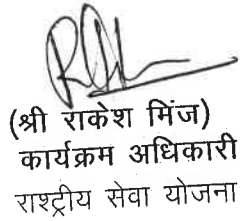 (श्री राकेश मिंज)
कार्यक्रम अधिकारी
राश्ट्रीय सेवा योजना